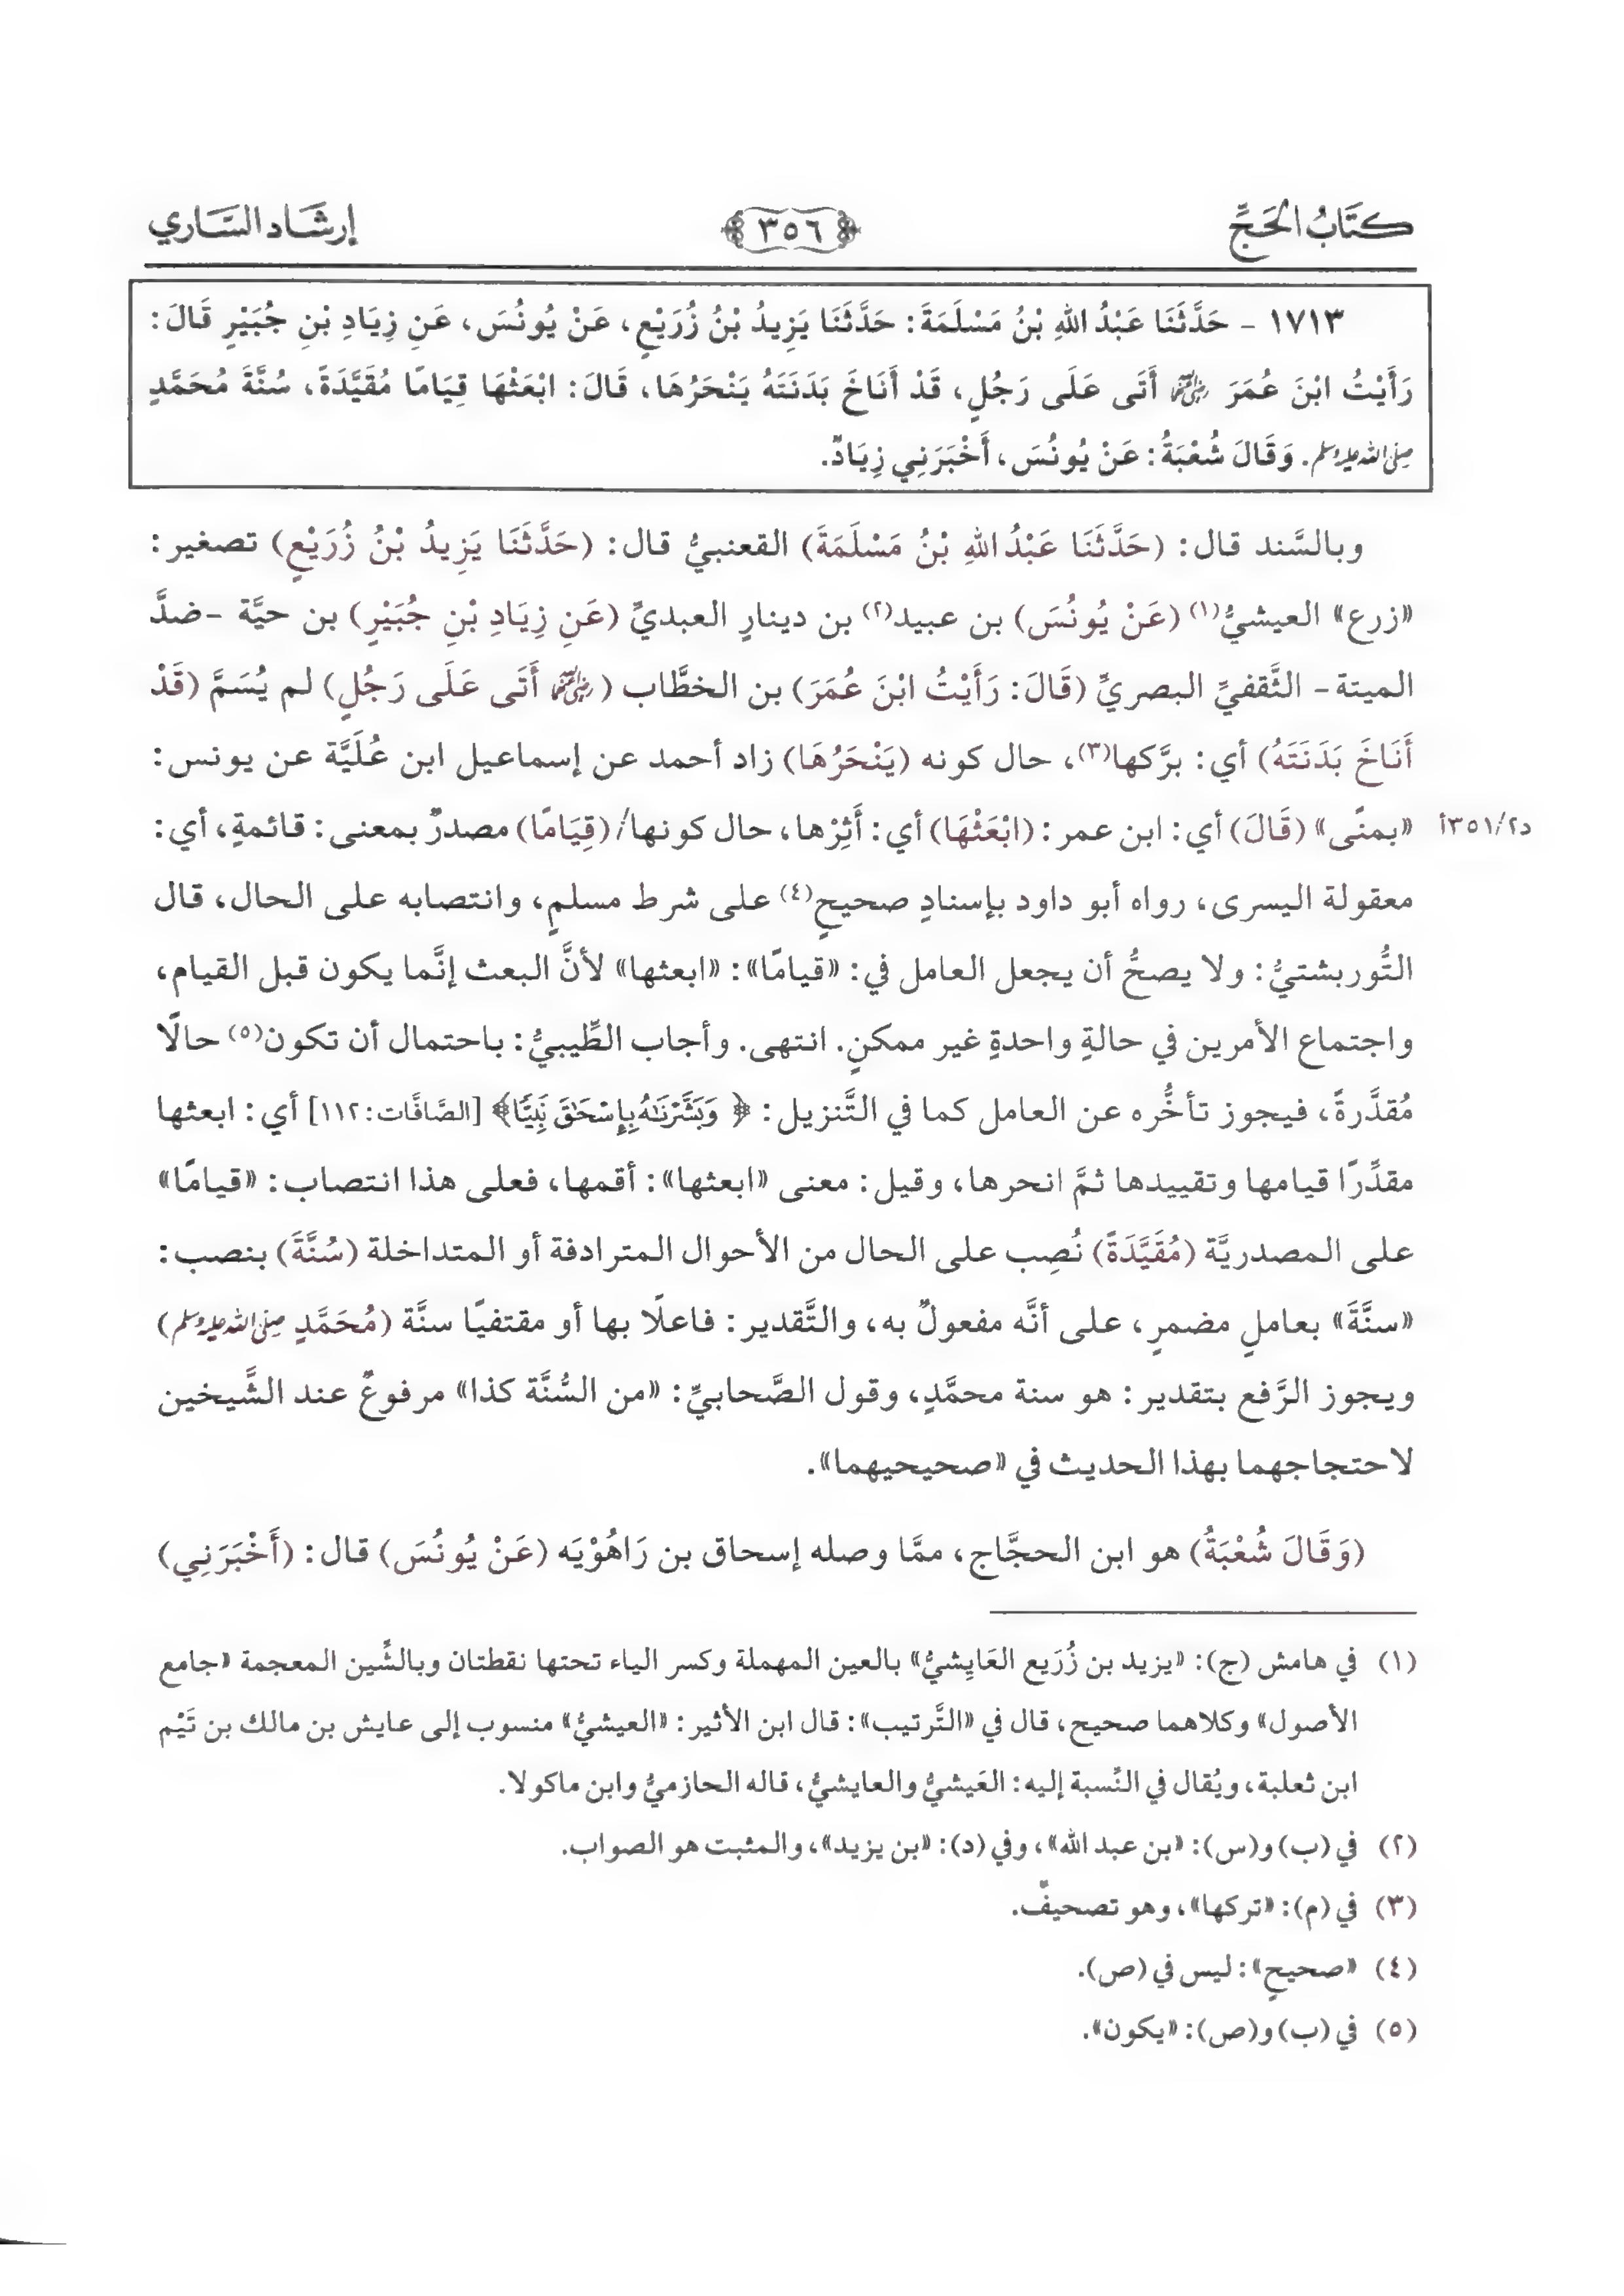 كتاب الحج
٣٥٦
إرشاد الساري
١٧١٣ - حَدَّثَنَا عَبْدُ اللهِ بْنُ مَسْلَمَةَ: حَدَّثَنَا يَزِيدُ بْنُ زُرَيْعٍ، عَنْ يُونُسَ، عَنِ زِيَادِ بْنِ جُبَيْرٍ قَالَ:
رَأَيْتُ ابْنَ عُمَرَ ﵄ أَتَى عَلَى رَجُلٍ، قَدْ أَنَاخَ بَدَنَتَهُ يَنْحَرُهَا، قَالَ: ابْعَثْهَا قِيَامًا مُقَيَّدَةً، سُنَّةَ مُحَمَّدٍ
صلى الله عليه وسلم. وَقَالَ شُعْبَةُ: عَنْ يُونُسَ، أَخْبَرَنِي زِيَادٌ.
وبالسَّند قال: (حَدَّثَنَا عَبْدُ اللهِ بْنُ مَسْلَمَةَ) القعنبيُّ قال: (حَدَّثَنَا يَزِيدُ بْنُ زُرَيْعٍ) تصغير:
«زرع» العيشيُّ(١) (عَنْ يُونُسَ) بن عبيد(٢) بن دينارٍ العبديِّ (عَنِ زِيَادِ بْنِ جُبَيْرٍ) بن حيَّة -ضدَّ
الميتة- الثَّقفيِّ البصريِّ (قَالَ: رَأَيْتُ ابْنَ عُمَرَ) بن الخطَّاب (﵄ أَتَى عَلَى رَجُلٍ) لم يُسَمَّ (قَدْ
أَنَاخَ بَدَنَتَهُ) أي: برَّكها(٣)، حال كونه (يَنْحَرُهَا) زاد أحمد عن إسماعيل ابن عُلَيَّة عن يونس:
«بمنًى» (قَالَ) أي: ابن عمر: (ابْعَثْهَا) أي: أَثِرْها، حال كونها/ (قِيَامًا) مصدرٌ بمعنى: قائمةٍ، أي:
د٣٥١/٢أ
معقولة اليسرى، رواه أبو داود بإسنادٍ صحيحٍ(٤) على شرط مسلمٍ، وانتصابه على الحال، قال
التُّوربشتيُّ: ولا يصحُّ أن يجعل العامل في: «قيامًا»: «ابعثها» لأنَّ البعث إنَّما يكون قبل القيام،
واجتماع الأمرين في حالةٍ واحدةٍ غير ممكنٍ. انتهى. وأجاب الطِّيبيُّ: باحتمال أن تكون(٥) حالًا
مُقدَّرةً، فيجوز تأخُّره عن العامل كما في التَّنزيل: ﴿وَبَشَّرْنَاهُ بِإِسْحَاقَ نَبِيًّا﴾ [الصَّافَّات: ١١٢] أي: ابعثها
مقدِّرًا قيامها وتقييدها ثمَّ انحرها، وقيل: معنى «ابعثها»: أقمها، فعلى هذا انتصاب: «قيامًا»
على المصدريَّة (مُقَيَّدَةً) نُصِب على الحال من الأحوال المترادفة أو المتداخلة (سُنَّةَ) بنصب:
«سنَّةَ» بعاملٍ مضمرٍ، على أنَّه مفعولٌ به، والتَّقدير: فاعلًا بها أو مقتفيًا سنَّة (مُحَمَّدٍ صلى الله عليه وسلم)
ويجوز الرَّفع بتقدير: هو سنة محمَّدٍ، وقول الصَّحابيِّ: «من السُّنَّة كذا» مرفوعٌ عند الشَّيخين
لاحتجاجهما بهذا الحديث في «صحيحيهما».
(وَقَالَ شُعْبَةُ) هو ابن الحجَّاج، ممَّا وصله إسحاق بن رَاهُوْيَه (عَنْ يُونُسَ) قال: (أَخْبَرَنِي)
(١) في هامش (ج): «يزيد بن زُرَيع العَايِشيُّ» بالعين المهملة وكسر الياء تحتها نقطتان وبالشِّين المعجمة «جامع
الأصول» وكلاهما صحيح، قال في «التَّرتيب»: قال ابن الأثير: «العيشيُّ» منسوب إلى عايش بن مالك بن تَيْم
ابن ثعلبة، ويُقال في النِّسبة إليه: العَيشيُّ والعايشيُّ، قاله الحازميُّ وابن ماكولا.
(٢) في (ب) و(س): «بن عبد الله»، وفي (د): «بن يزيد»، والمثبت هو الصواب.
(٣) في (م): «تركها»، وهو تصحيفٌ.
(٤) «صحيحٍ»: ليس في (ص).
(٥) في (ب) و(ص): «يكون».